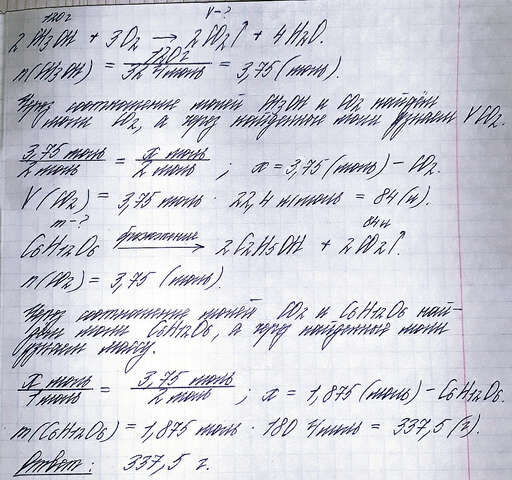 120г V-?
2 CH3OH + 3O2 → 2CO2↑ + 4H2O.
n(CH3OH) = 120г / 32 г/моль = 3,75 (моль).
Через соотношение молей CH3OH и CO2 найдём
моли CO2, а через найденные моли узнаем VCO2.
3,75 моль / 2 моль = x моль / 2 моль ; x = 3,75 (моль) – CO2.
V(CO2) = 3,75 моль · 22,4 л/моль = 84 (л).
m-? 84 л
C6H12O6 брожение → 2C2H5OH + 2CO2↑.
n(CO2) = 3,75 (моль).
Через соотношение молей CO2 и C6H12O6 най-
дём моли C6H12O6, а через найденные моли
узнаем массу.
x моль / 1 моль = 3,75 моль / 2 моль ; x = 1,875 (моль) – C6H12O6.
m(C6H12O6) = 1,875 моль · 180 г/моль = 337,5 (г).
Ответ: 337,5 г.